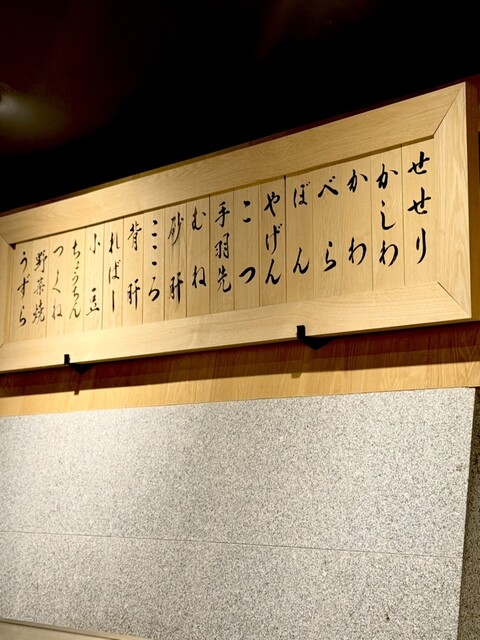 せせり
かしわ
かわ
べら
ぼん
やげん
こつ
手羽先
むね
砂肝
こころ
背肝
ればー
小豆
ちょうちん
つくね
野菜焼
うずら